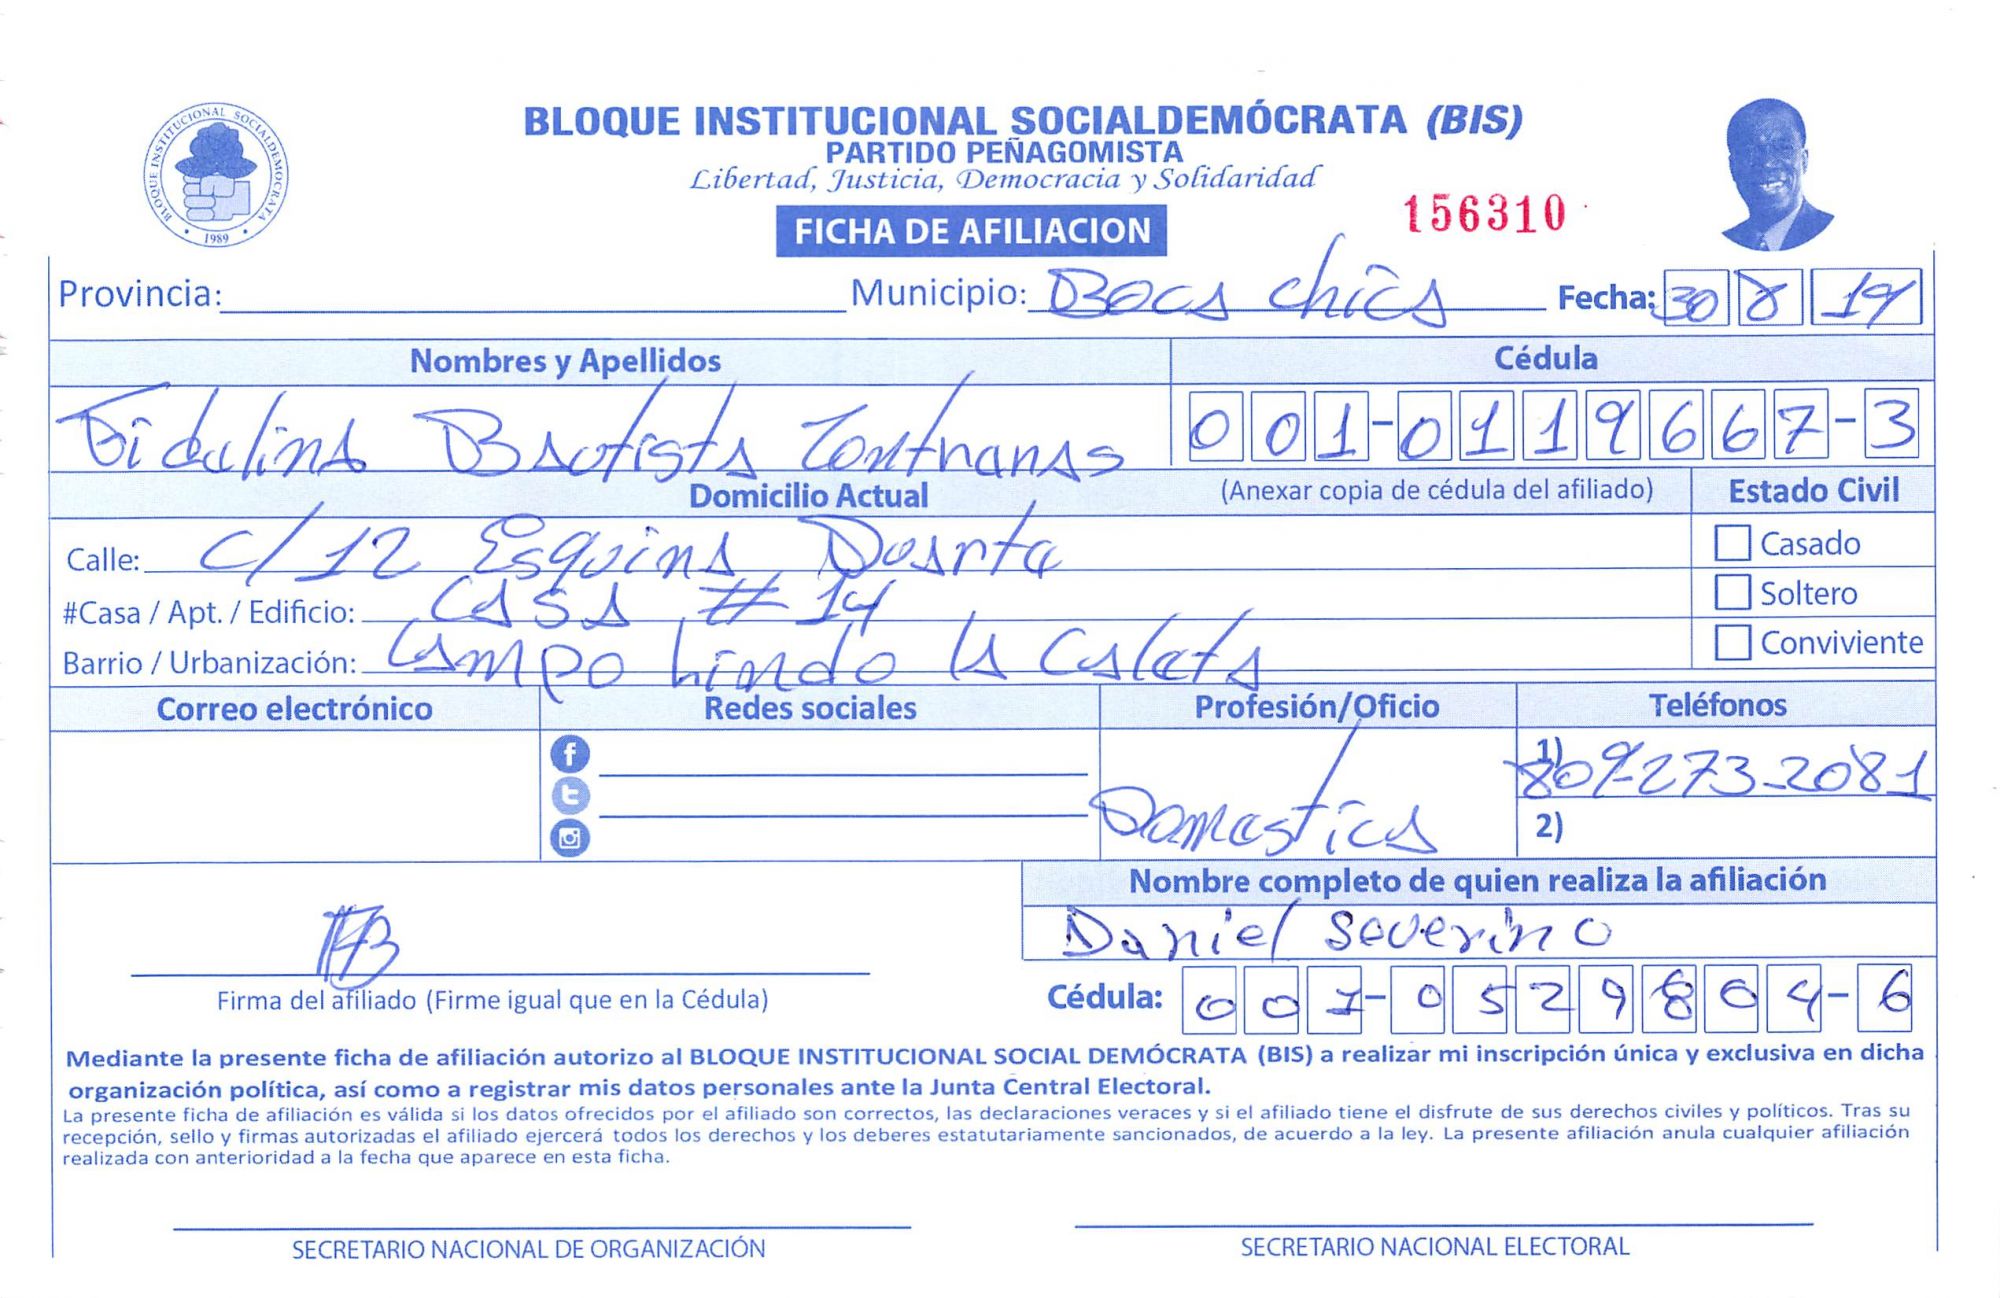 BLOQUE INSTITUCIONAL SOCIALDEMÓCRATA (BIS)
PARTIDO PEÑAGOMISTA
Libertad, Justicia, Democracia y Solidaridad
BLOQUE INSTITUCIONAL SOCIALDEMOCRATA
1989
FICHA DE AFILIACION
156310
Provincia: Municipio: Boca chica Fecha: 30 8 19
Nombres y Apellidos Cédula
Bautista 001-0119667-3
Domicilio Actual (Anexar copia de cédula del afiliado) Estado Civil
Calle: c/12 Esquina Duarte Casado
#Casa / Apt. / Edificio: Casa # 14 Soltero
Barrio / Urbanización: Campo Lindo la Caleta Conviviente
Correo electrónico Redes sociales Profesión/Oficio Teléfonos
Domestica 1) 809-273-2081
2)
Nombre completo de quien realiza la afiliación
Daniel Severino
FB
Firma del afiliado (Firme igual que en la Cédula) Cédula: 001-0529804-6
Mediante la presente ficha de afiliación autorizo al BLOQUE INSTITUCIONAL SOCIAL DEMÓCRATA (BIS) a realizar mi inscripción única y exclusiva en dicha
organización política, así como a registrar mis datos personales ante la Junta Central Electoral.
La presente ficha de afiliación es válida si los datos ofrecidos por el afiliado son correctos, las declaraciones veraces y si el afiliado tiene el disfrute de sus derechos civiles y políticos. Tras su
recepción, sello y firmas autorizadas el afiliado ejercerá todos los derechos y los deberes estatutariamente sancionados, de acuerdo a la ley. La presente afiliación anula cualquier afiliación
realizada con anterioridad a la fecha que aparece en esta ficha.
SECRETARIO NACIONAL DE ORGANIZACIÓN SECRETARIO NACIONAL ELECTORAL